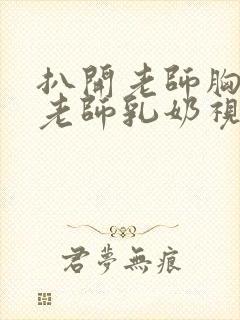 扒開老師胸
老師乳奶視
君夢無痕